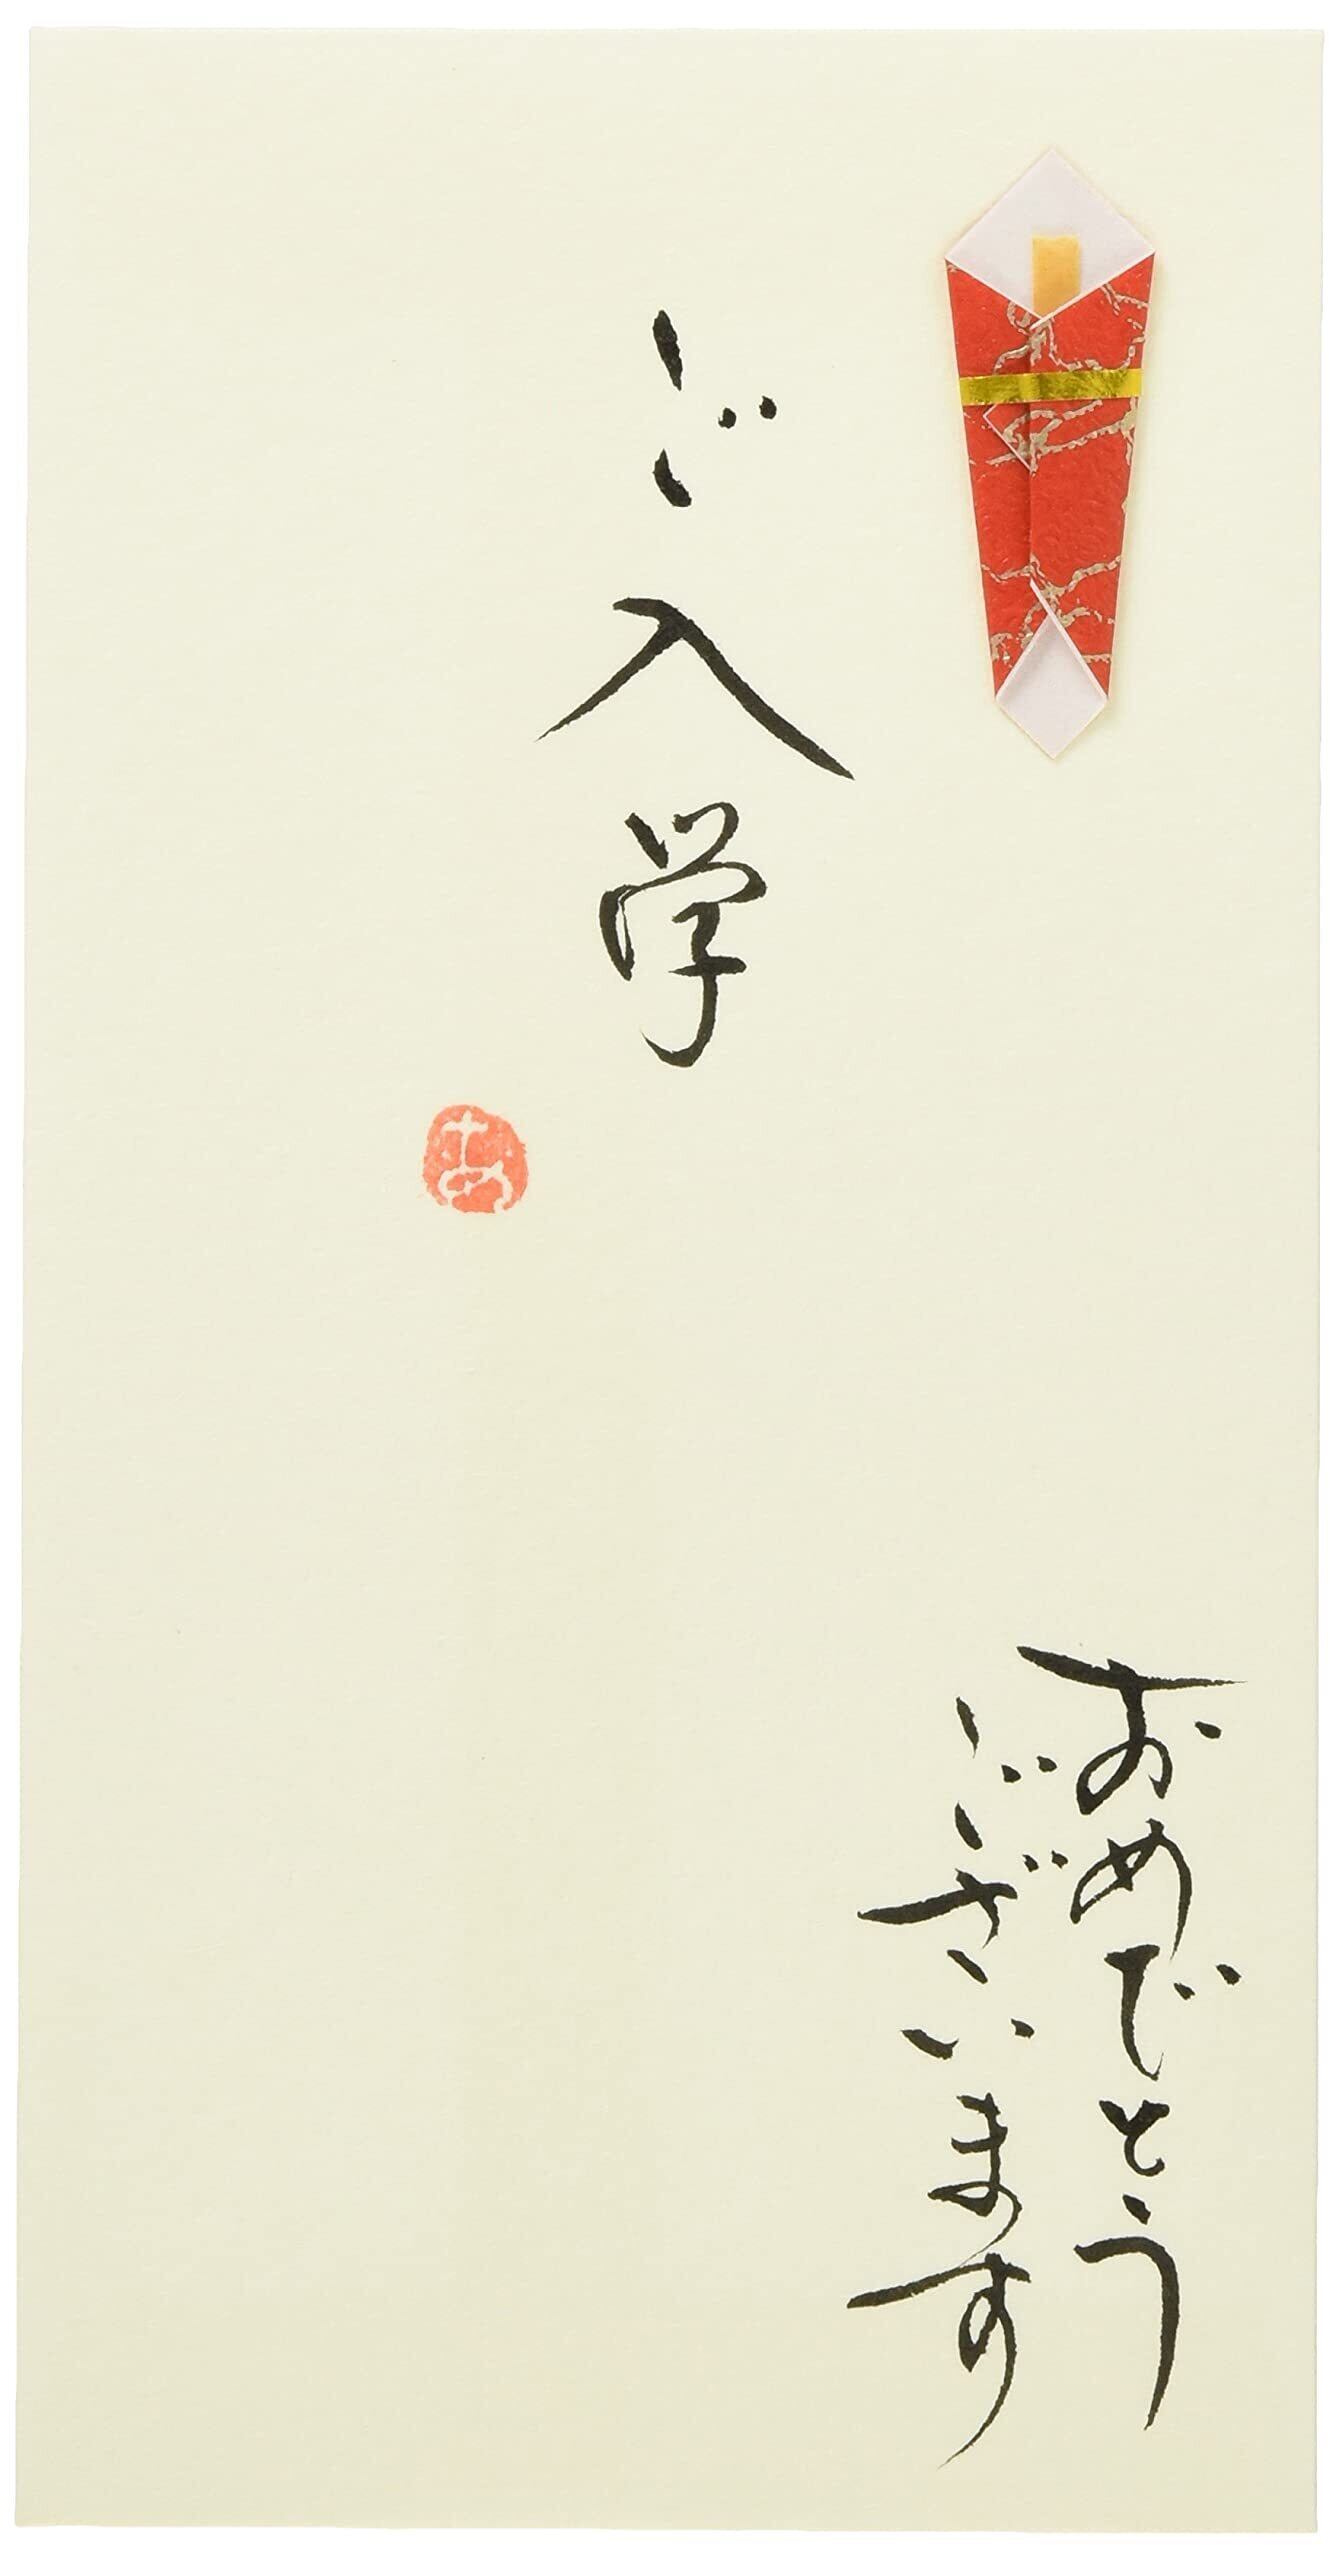 ご入学
おめでとう
ございます
あ